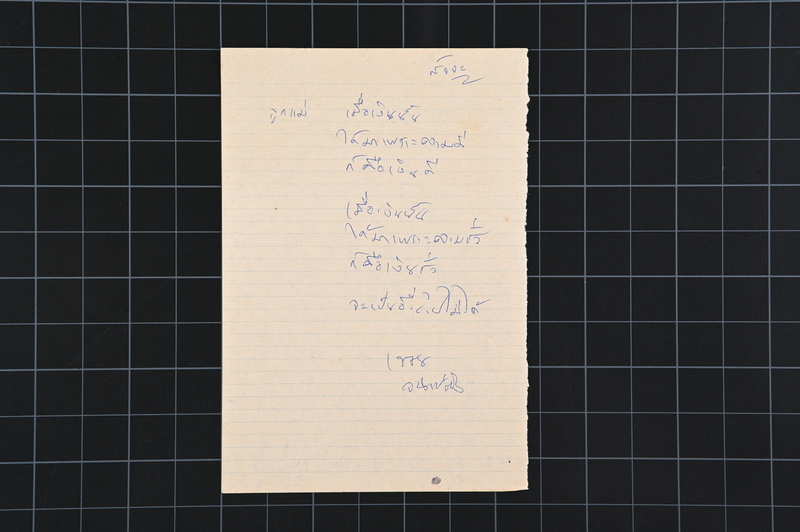 สัจจะ
ลูกแม่ เมื่อเงินนั้น
ได้มาเพราะความดี
ก็คือเงินดี
เมื่อเงินนั้น
ได้มาเพราะความชั่ว
ก็คือเงินชั่ว
จะเป็นอื่นไปไม่ได้
เขมา